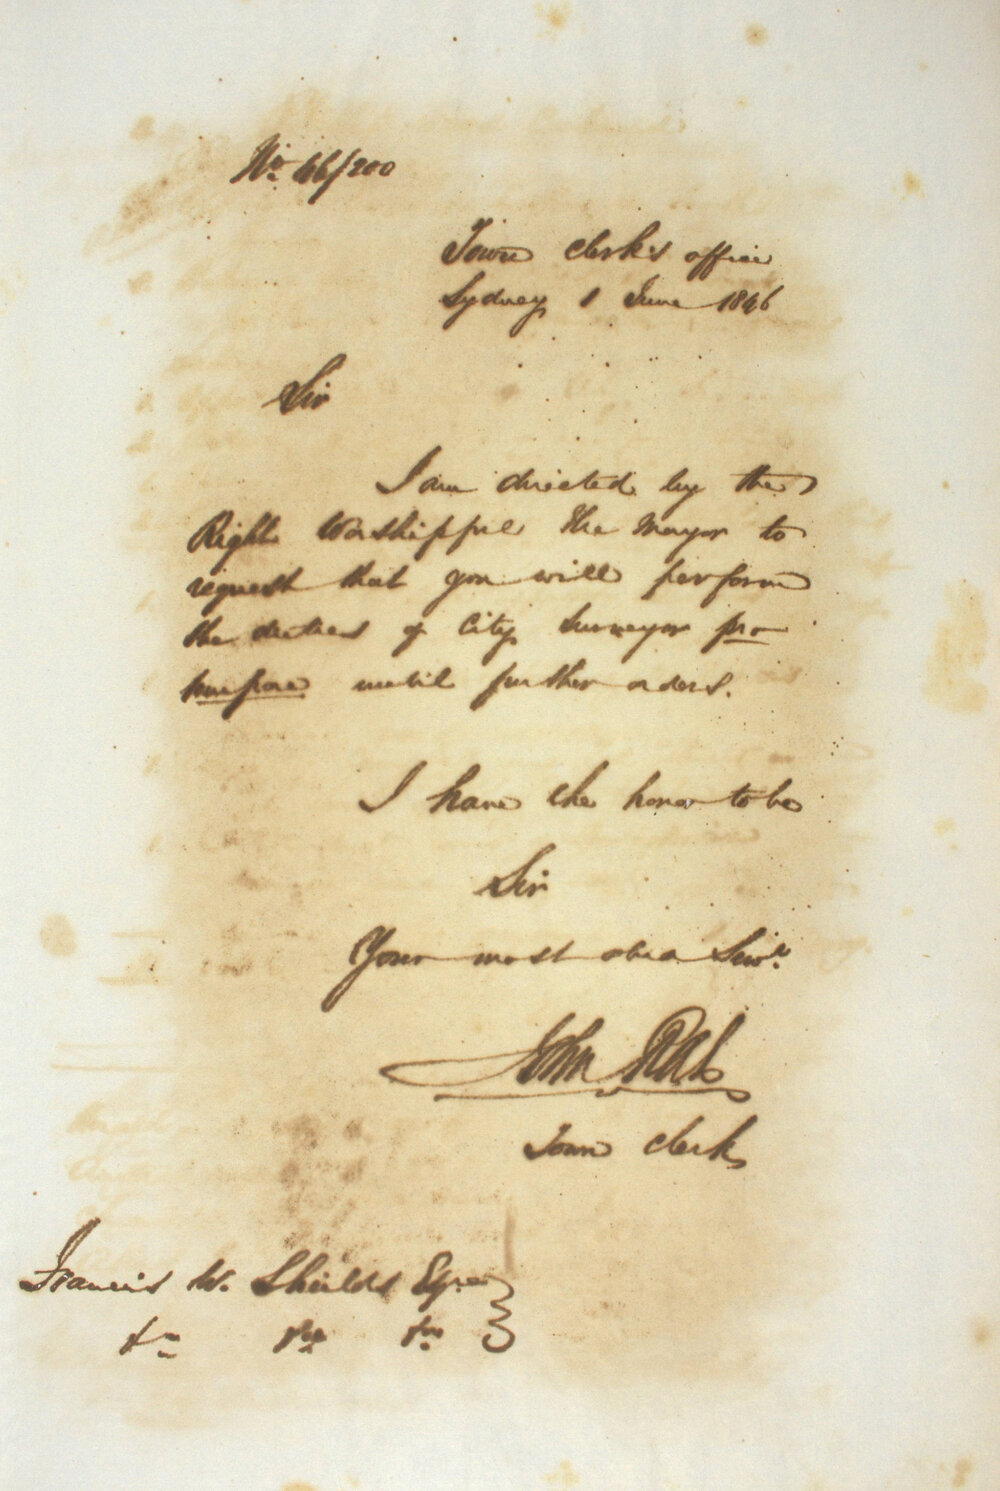 No. 46/200
Town Clerk's office
Sydney 1 June 1846
Sir
I am directed by the
Right Worshipful the Mayor to
request that you will perform
the duties of City Surveyor pro
tempore until further orders.
I have the honor to be
Sir
Your most obed Servt.
John
Town Clerk
Francis W. Sheilds Esqre
&c &c &c